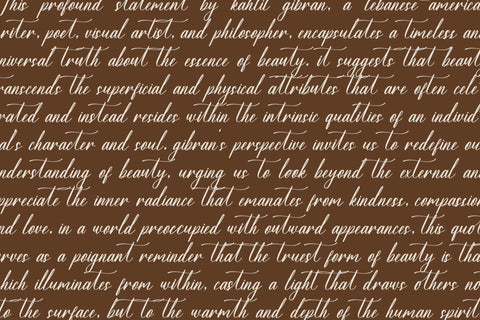 This profound statement by kahlil gibran, a lebanese america
riter, poet, visual artist, and philosopher, encapsulates a timeless an
niversal truth about the essence of beauty. it suggests that beaut
ranscends the superficial and physical attributes that are often cele
rated and instead resides within the intrinsic qualities of an individ
al's character and soul. gibran's perspective invites us to redefine ou
nderstanding of beauty, urging us to look beyond the external an
ppreciate the inner radiance that emanates from kindness, compassion
nd love. in a world preoccupied with outward appearances, this quot
erves as a poignant reminder that the truest form of beauty is tha
hich illuminates from within, casting a light that draws others no
to the surface, but to the warmth and depth of the human spirit